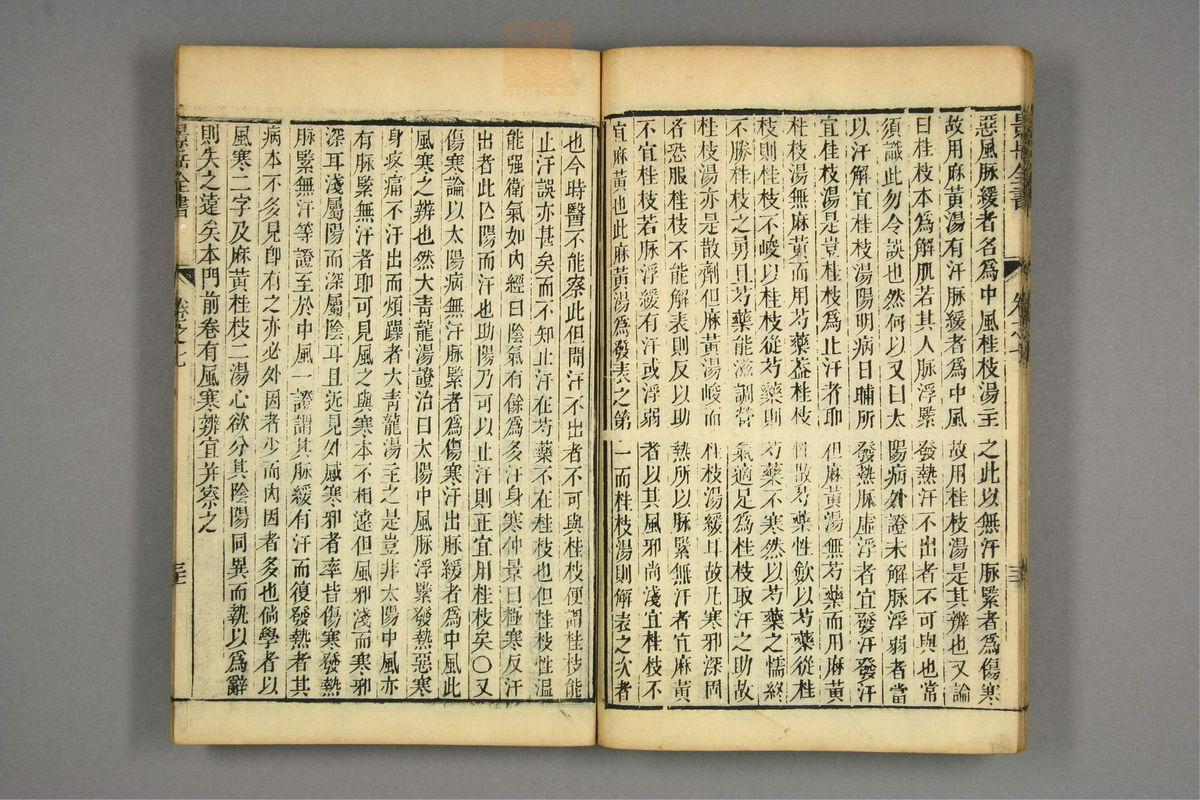 惡風脉緩者名爲中風桂枝湯主之此以無汗脉緊者爲傷寒
故用麻黄湯有汗脉緩者爲中風故用桂枝湯是其辨也又論
曰桂枝本爲解肌若其人脉浮緊發熱汗不出者不可與也常
須識此勿令誤也然何以又曰太陽病外證未解脉浮弱者當
以汗解宜桂枝湯陽明病日晡所發熱脉虛浮者宜發汗發汗
宜桂枝湯是豈桂枝爲止汗者耶但麻黄湯無芍藥而用麻黄
桂枝湯無麻黄而用芍藥蓋桂枝性散芍藥性歛以芍藥從桂
枝則桂枝不峻以桂枝從芍藥則芍藥不寒然以芍藥之懦終
不勝桂枝之勇且芍藥能滋調營氣適足爲桂枝取汗之助故
桂枝湯亦是散劑但麻黄湯峻而桂枝湯緩耳故凡寒邪深固
各恐服桂枝不能解表則反以助熱所以脉緊無汗者宜麻黄
不宜桂枝若脉浮緩有汗或浮弱者以其風邪尚淺宜桂枝不
宜麻黄也此麻黄湯爲發表之第一而桂枝湯則解表之次者
也今時醫不能察此但聞汗不出者不可與桂枝便謂桂枝能
止汗誤亦甚矣而不知止汗在芍藥不在桂枝也但桂枝性溫
能强衛氣如内經曰陰氣有餘爲多汗身寒仲景曰極寒反汗
出者此亾陽而汗也助陽乃可以止汗則正宜用桂枝矣〇又
傷寒論以太陽病無汗脉緊者爲傷寒汗出脉緩者爲中風此
風寒之辨也然大青龍湯證治曰太陽中風脉浮緊發熱惡寒
身疼痛不汗出而煩躁者大青龍湯主之是豈非太陽中風亦
有脉緊無汗者耶即可見風之與寒本不相遠但風邪淺而寒邪
深耳淺屬陽而深屬陰耳且近見外感寒邪者率皆傷寒發熱
脉緊無汗等證至於中風一證謂其脉緩有汗而復發熱者其
病本不多見即有之亦必外因者少而内因者多也倘學者以
風寒二字及麻黄桂枝二湯心欲分其陰陽同異而執以爲辭
則失之遠矣本門前卷有風寒辨宜并察之
景岳全書
卷之七